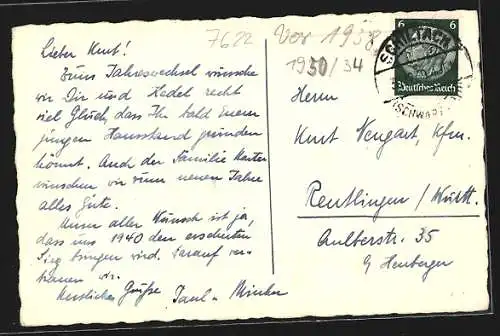 7622
Vor 1938
1930/34
6 6
SCHILTACH
SCHWARZ
Deutsches Reich
Lieber Kurt!
Zum Jahreswechsel wünschen
wir Dir und Hedel recht
viel Glück, dass Ihr bald Euren
jungen Hausstand gründen
könnt. Auch der Familie
wünschen wir zum neuen Jahre
alles Gute.
Unser aller Wunsch ist ja,
dass uns 1940 den ersehnten
Sieg bringen wird. Darauf ver-
trauen wir.
Herzliche Grüße Paul u.
Herrn
Kurt Vengart, Kfm.
Reutlingen / Württ.
Aulberstr. 35
b/ Henberger